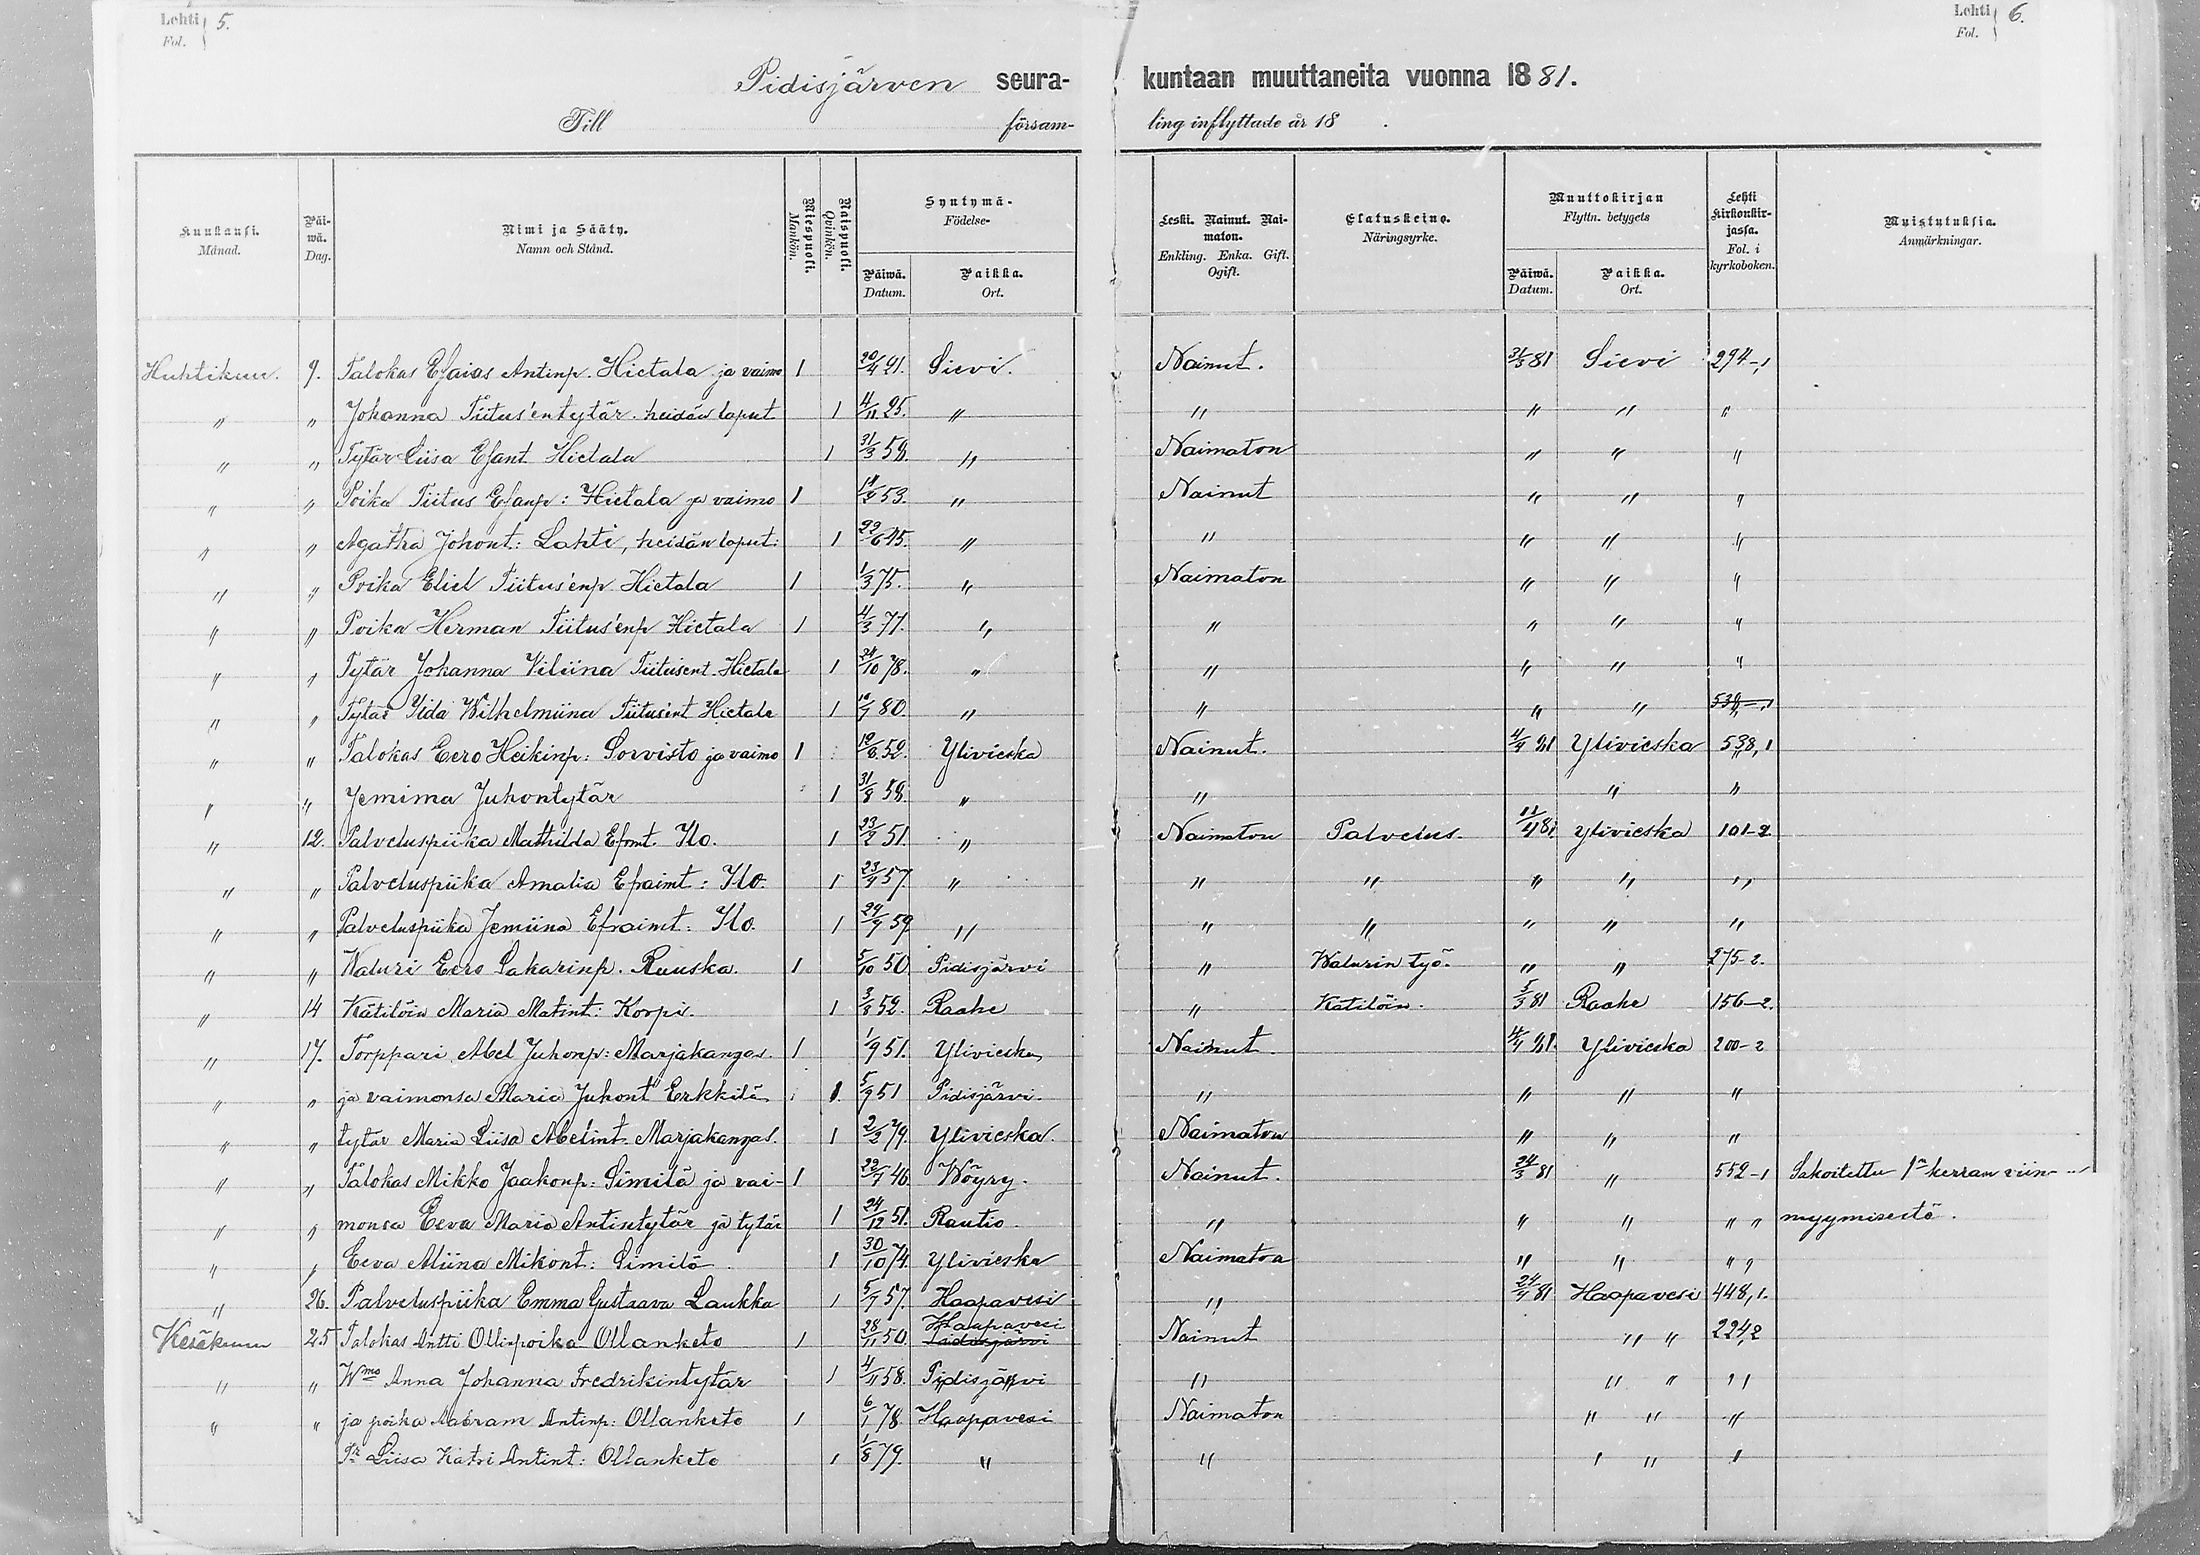 Lehti 5.
Fol.
Lehti 6.
Fol.
Pidisjärven seura- kuntaan muuttaneita vuonna 1881.
Till församling inflyttade år 18 .
Kuukausi. Månad.
Päiwä. Dag.
Nimi ja Sääty. Namn och Stånd.
Miespuoli. Mankön.
Naispuoli. Qvinkön.
Syntymä- Födelse-
Päiwä. Datum.
Paikka. Ort.
Leski. Nainut. Naimaton. Enkling. Enka. Gift. Ogift.
Elatuskeino. Näringsyrke.
Muuttokirjan Flyttn. betygets
Päiwä. Datum.
Paikka. Ort.
Lehti kirkonkirjassa. Fol. i kyrkoboken.
Muistutuksia. Anmärkningar.
Huhtikuu. 9. Talokas Esaias Antinp. Hietala ja vaimo 1 20/4 21. Sievi. Nainut. 31/3 81 Sievi 294-1
" " Johanna Tiitus'entytär heidän laput 1 4/11 25. " " " " "
" " Tytär Liisa Esant Hietala 1 31/3 58. " Naimaton " " "
" " Poika Tiitus Esanp: Hietala ja vaimo 1 53. " Nainut " " "
" " Agatha Johont: Lahti, heidän laput: 1 22/6 45. " " " " "
" " Poika Eliel Tiitus'enp Hietala 1 1/3 75. " Naimaton " " "
" " Poika Herman Tiitus'enp Hietala 1 4/3 77. " " " " "
" " Tytär Johanna Viliina Tiitusent. Hietala 1 24/10 78. " " " " "
" " Tytär Ida Wilhelmiina Tiitusent Hietala 1 80. " " " "
" " Talokas Eero Heikinp: Sorvisto ja vaimo 1 52. Ylivieska Nainut. 4/4 81 Ylivieska 538,1
" " Jemima Juhontytär 1 31/8 58. " " " "
" 12. Palveluspiika Mathilda Efrmt. Ylo. 1 23/2 51. " Naimaton Palvelus. 11/4 81. Ylivieska 101-2
" " Palveluspiika Amalia Efraimt: Ylo. 1 23/4 57. " " " " " "
" " Palveluspiika Jemiina Efraimt: Ylo. 1 59 " " " " " "
" " Waluri Eero Sakarinp. Ruuska. 1 5/10 50 Pidisjärvi " Walurin työ. " " 275-2.
" 14 Kätilöin Maria Matint: Korpi. 1 3/8 52. Raahe " Kätilöin. 5/3 81 Raahe 156-2.
" 17. Torppari Abel Juhonp: Marjakangas. 1 1/9 51. Ylivieska Nainut. 4/4 81. Ylivieska 200-2
" " ja vaimonsa Maria Juhont Erkkilä 1. 5/9 51 Pidisjärvi. " " " "
" " tytär Maria Liisa Abelint. Marjakangas. 1 2/2 79. Ylivieska. Naimaton " " "
" " Talokas Mikko Jaakonp: Similä ja vai- 1 22/7 46 Wöyry. Nainut. 24/3 81 " 552-1 Sakoitettu 1n kerran viin
" " monsa Eeva Maria Antintytär ja tytär 1 24/12 51. Rautio. " " " " " myymisestä.
" " Eeva Aliina Mikont: Similä 1 30/10 74. Ylivieska Naimaton " " " "
" 26. Palveluspiika Emma Gustaava Laukka 1 5/7 57. Haapavesi " 24/4 81 Haapavesi 448,1.
Kesäkuun 25 Talokas Antti Ollinpoika Ollanketo 1 28/11 50. Haapavesi Pidisjärvi Nainut " " 224,2
" " Wmo Anna Johanna Fredrikintytär 1 4/11 58. Pidisjärvi " " " "
" " ja poika Aabram Antinp: Ollanketo 1 6/1 78 Haapavesi Naimaton " " "
Tr Liisa Katri Antint: Ollanketo 1 1/8 79. " " " " "